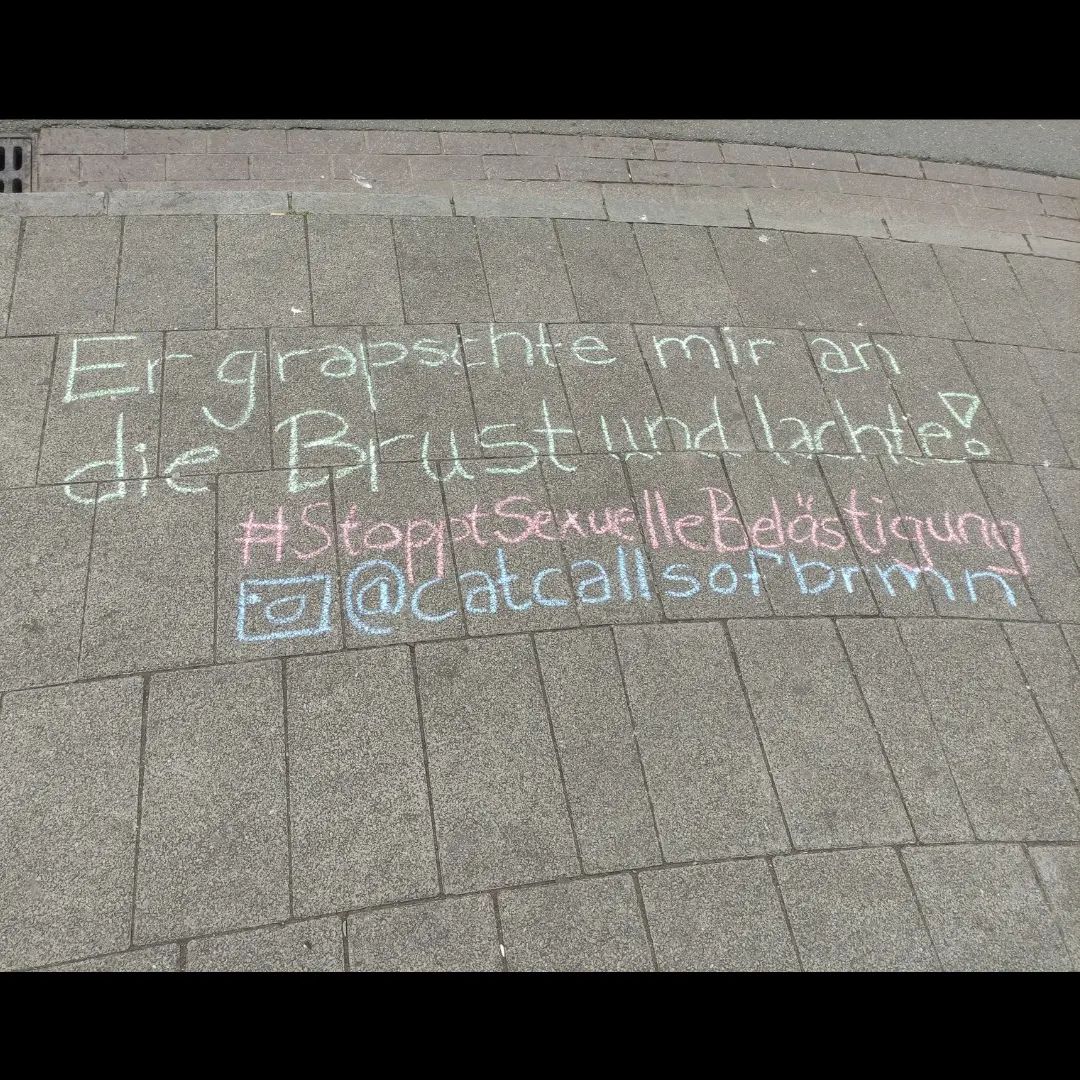 Er grapschte mir an
die Brust und lachte!
#StopptSexuelleBelästigung
@catcallsofbrmn